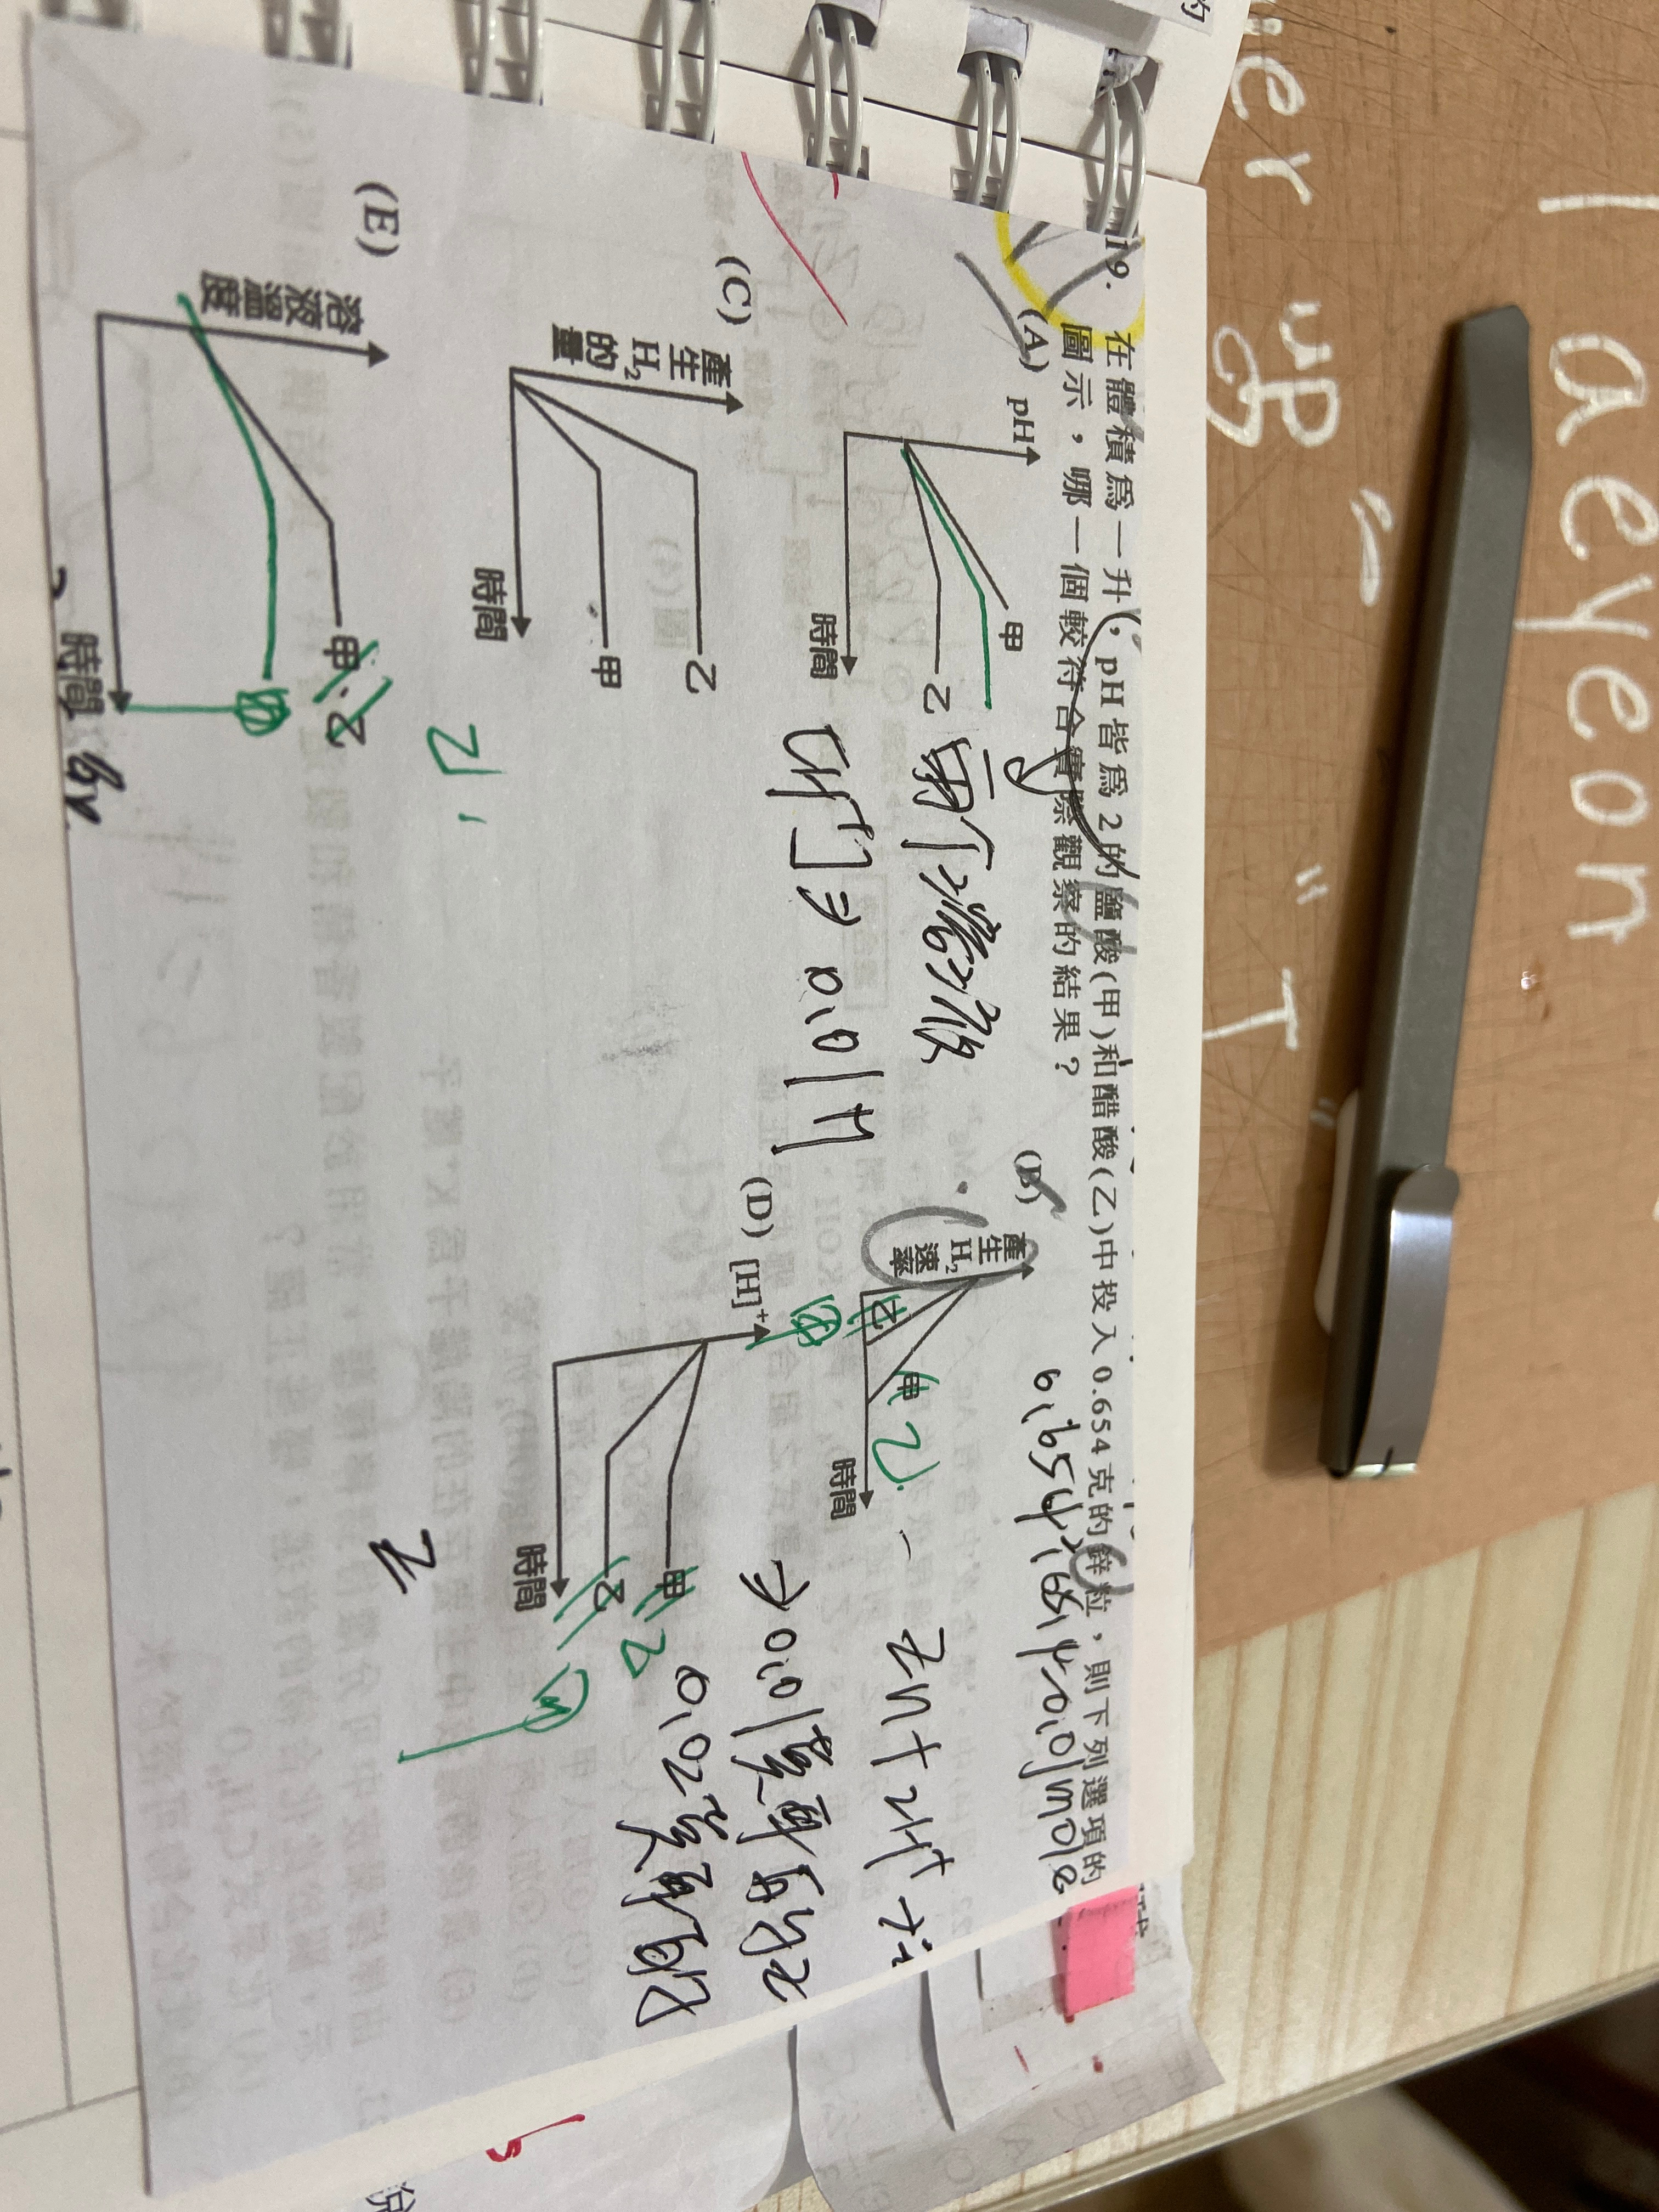 19. 在體積為一升，pH皆為2的鹽酸(甲)和醋酸(乙)中投入0.654克的鋅粒，則下列選項的
圖示，哪一個較符合實際觀察的結果？
0.654/65.4=0.01mole
(A)
pH
甲
乙
時間
兩个溶液
[H⁺]⇒0.01M
(B)
產生H₂速率
乙
甲
甲
乙
時間
(C)
產生H₂的量
乙
甲
時間
(D)
[H]⁺
甲
乙
乙
甲
時間
Zn+2H⁺
⇒0.01莫耳
0.02莫耳
(E)
溶液溫度
甲、乙
甲
時間
乙
aeyeon
er up